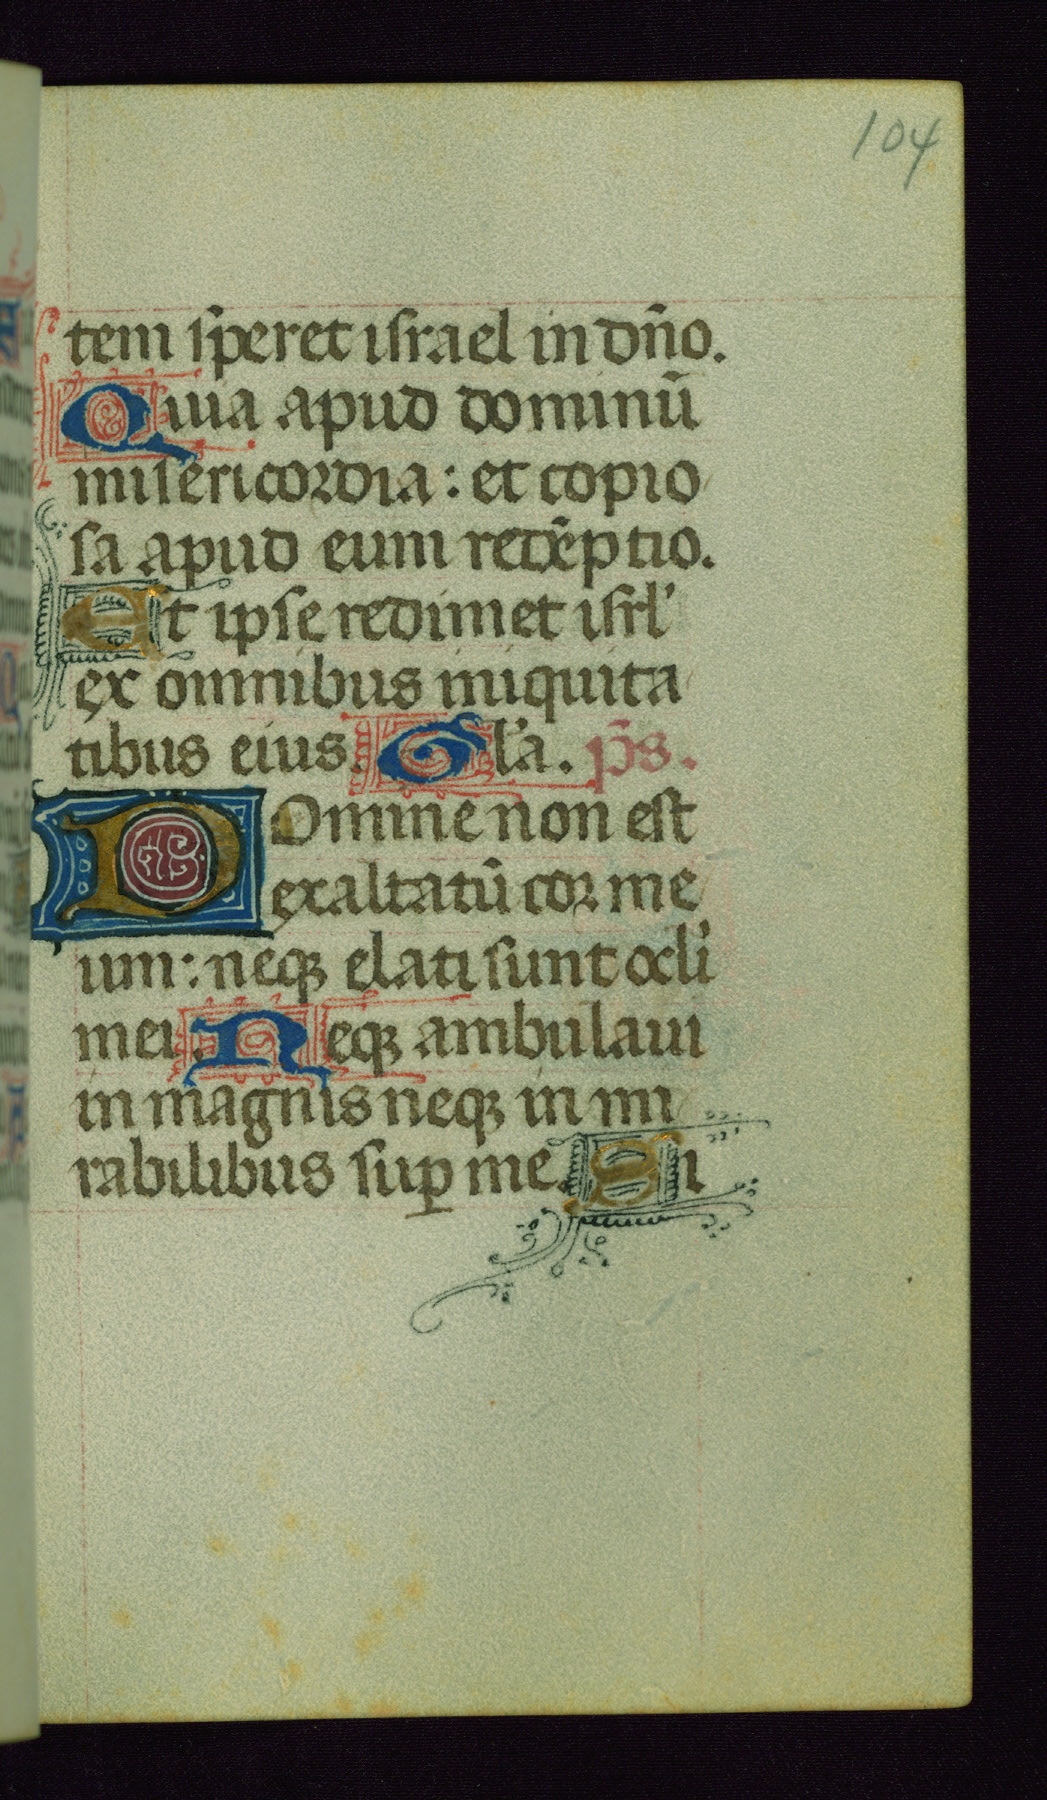 104
tem sꝑeret israel in dn̄o.
Quia apud dominū
misericordia: et copio
sa apud eum redēptio.
Et ipse redimet isrl'
ex omnibus iniquita
tibus eius. Gl'a. ps̄.
Domine non est
exaltatū cor me
um: neqꝫ elati sunt ocl'i
mei. Neqꝫ ambulaui
in magnis neqꝫ in mi
rabilibus suꝑ me. Si